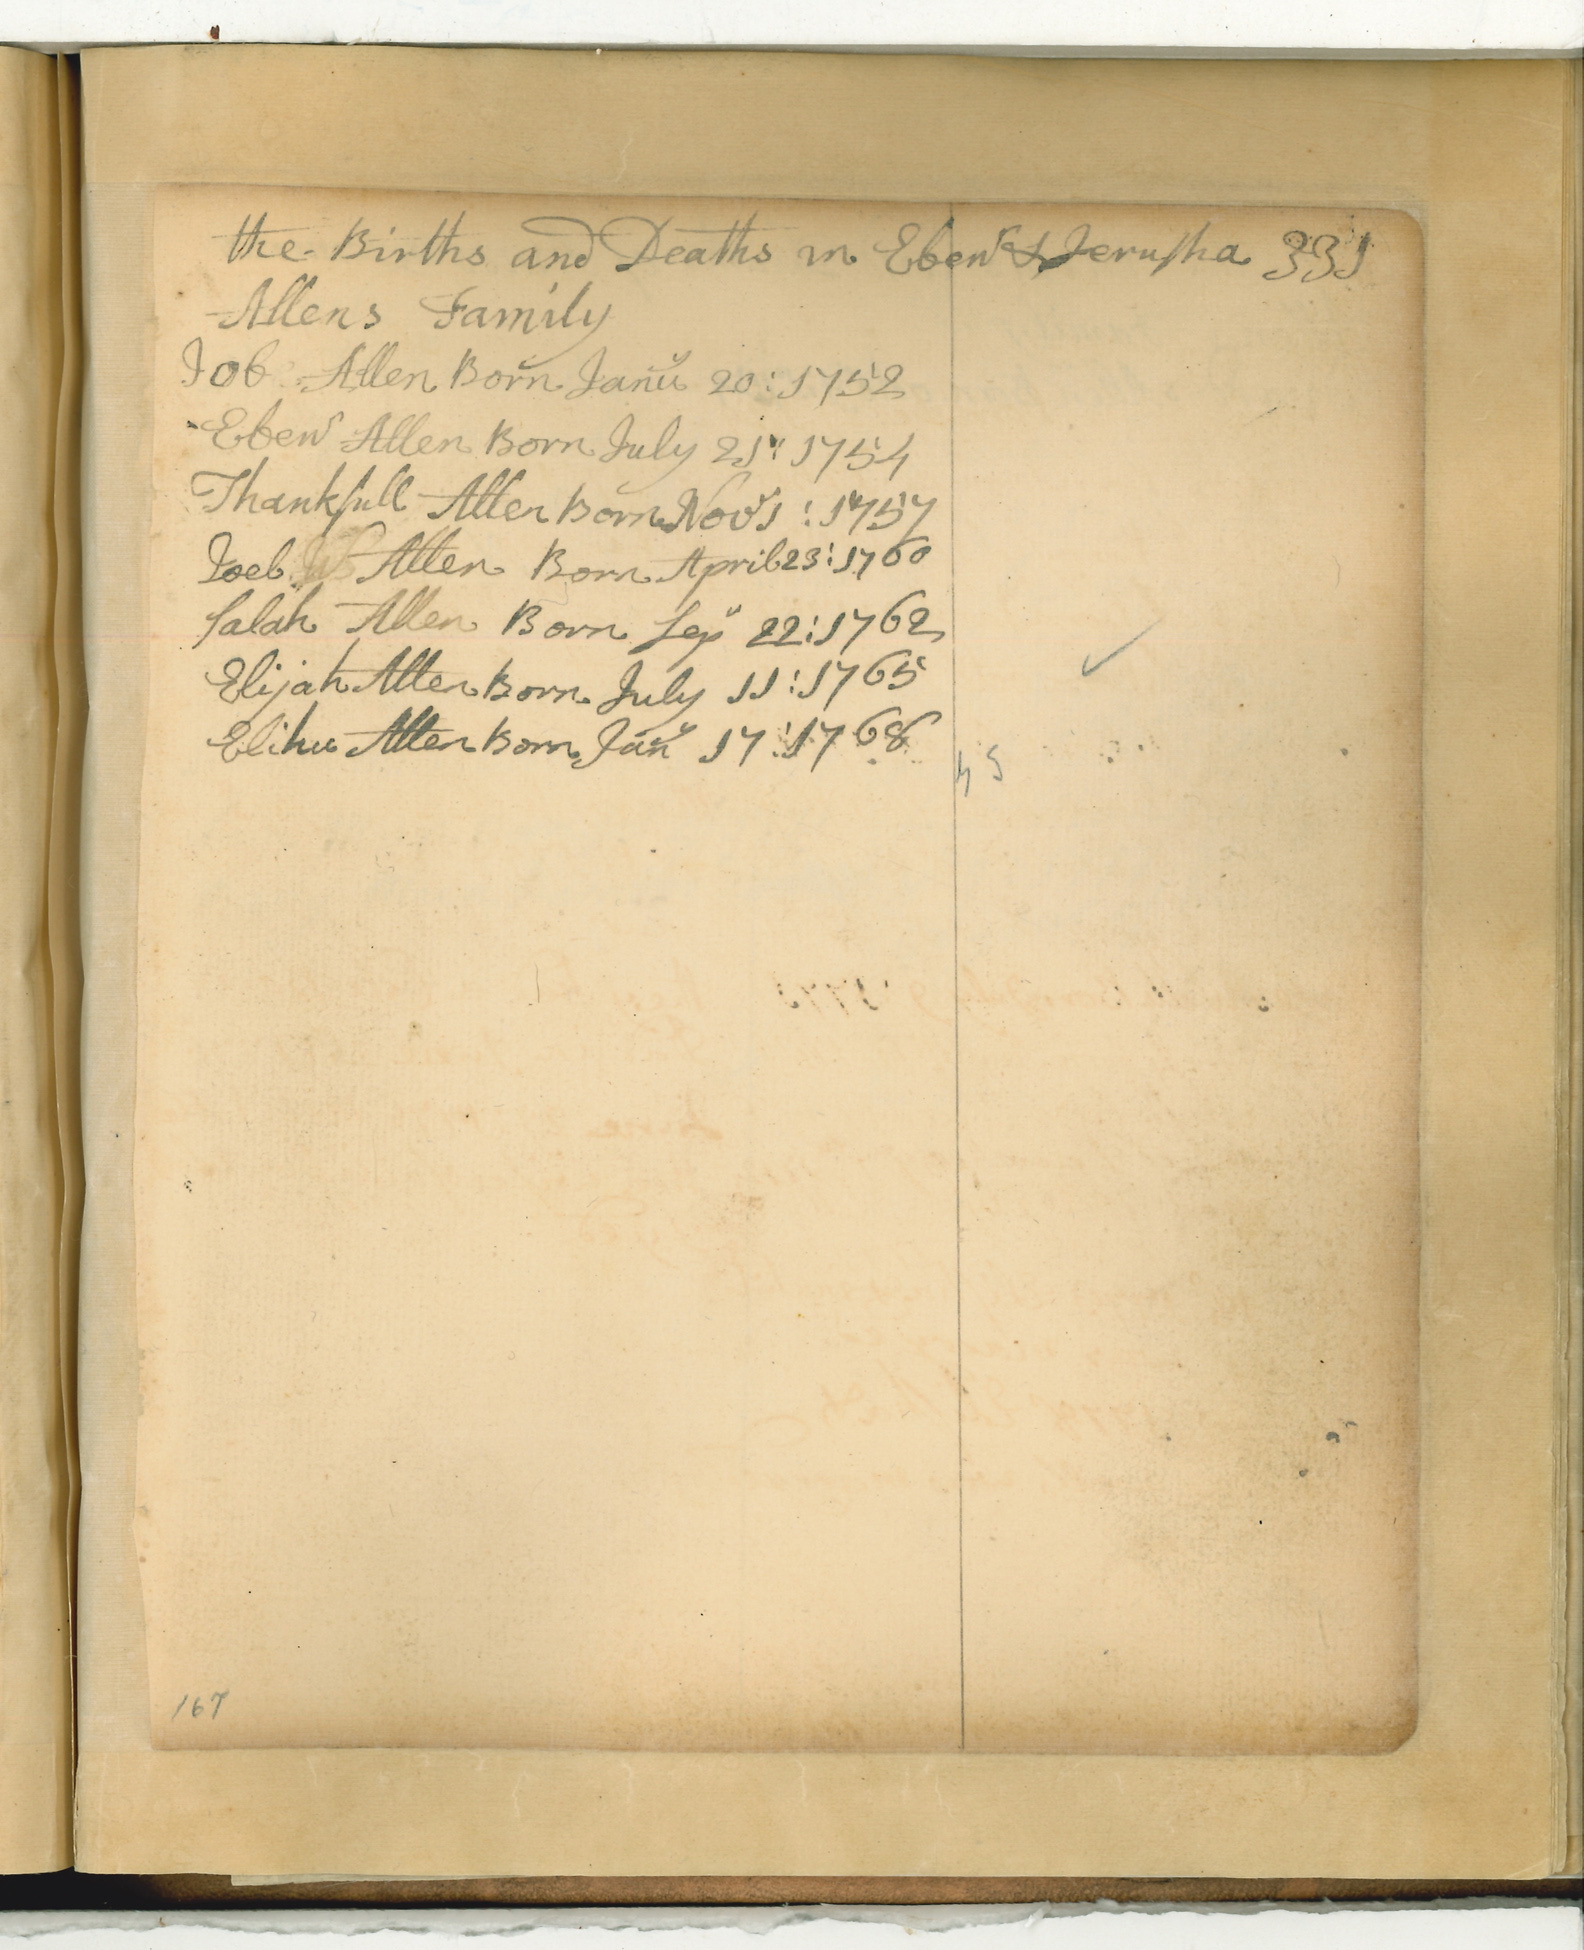 the Births and Deaths in Ebenr & Jerusha 331
Allens Family
Job Allen Born Janu 20: 1752
Ebenr Allen Born July 21: 1754
Thankfull Allen Born Nov 1: 1757
Joel Allen Born April 23: 1760
Salah Allen Born Sep 22: 1762
Elijah Allen Born July 11: 1765
Elihu Allen Born Jan 17: 1768
167